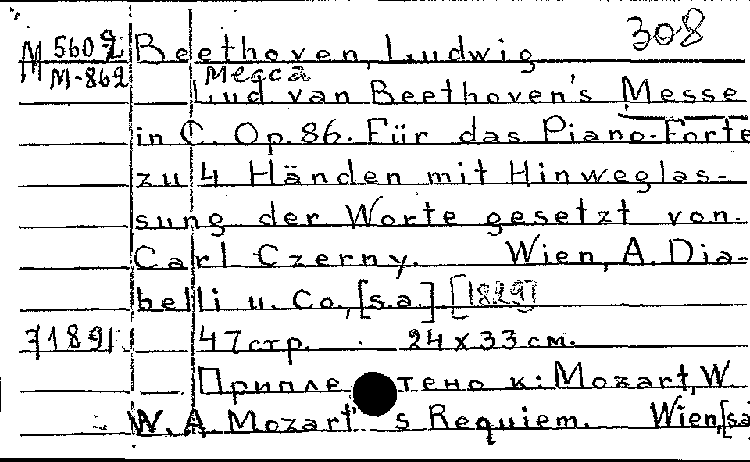 308
M 5607 Beethoven, Ludwig
M-862 Месса
Lud van Beethoven's Messe
in C. Op. 86. Für das Piano-Forte
zu 4 Händen mit Hinweglas-
sung der Worte gesetzt von
Carl Czerny. Wien, A. Dia-
belli u. Co., [s.a.] [1829]
31891 47 стр. 24 x 33 см.
Приплетено к: Mozart, W.
W. A. Mozart's Requiem. Wien, [s.a